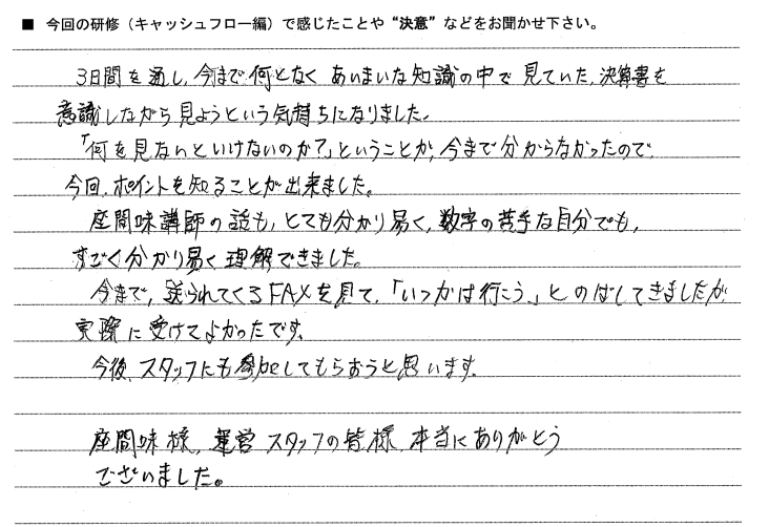 ■ 今回の研修（キャッシュフロー編）で感じたことや“決意”などをお聞かせ下さい。
3日間を通し、今まで何となくあいまいな知識の中で見ていた、決算書を
意識しながら見ようという気持ちになりました。
「何を見ないといけないのか?」ということが、今まで分からなかったので、
今回、ポイントを知ることが出来ました。
座間味講師の話も、とても分かり易く、数字の苦手な自分でも、
すごく分かり易く理解できました。
今まで、送られてくるFAXを見て、「いつかは行こう。」とのばしてきましたが
実際に受けてよかったです。
今後、スタッフにも参加してもらおうと思います。
座間味様、運営スタッフの皆様、本当にありがとう
ございました。